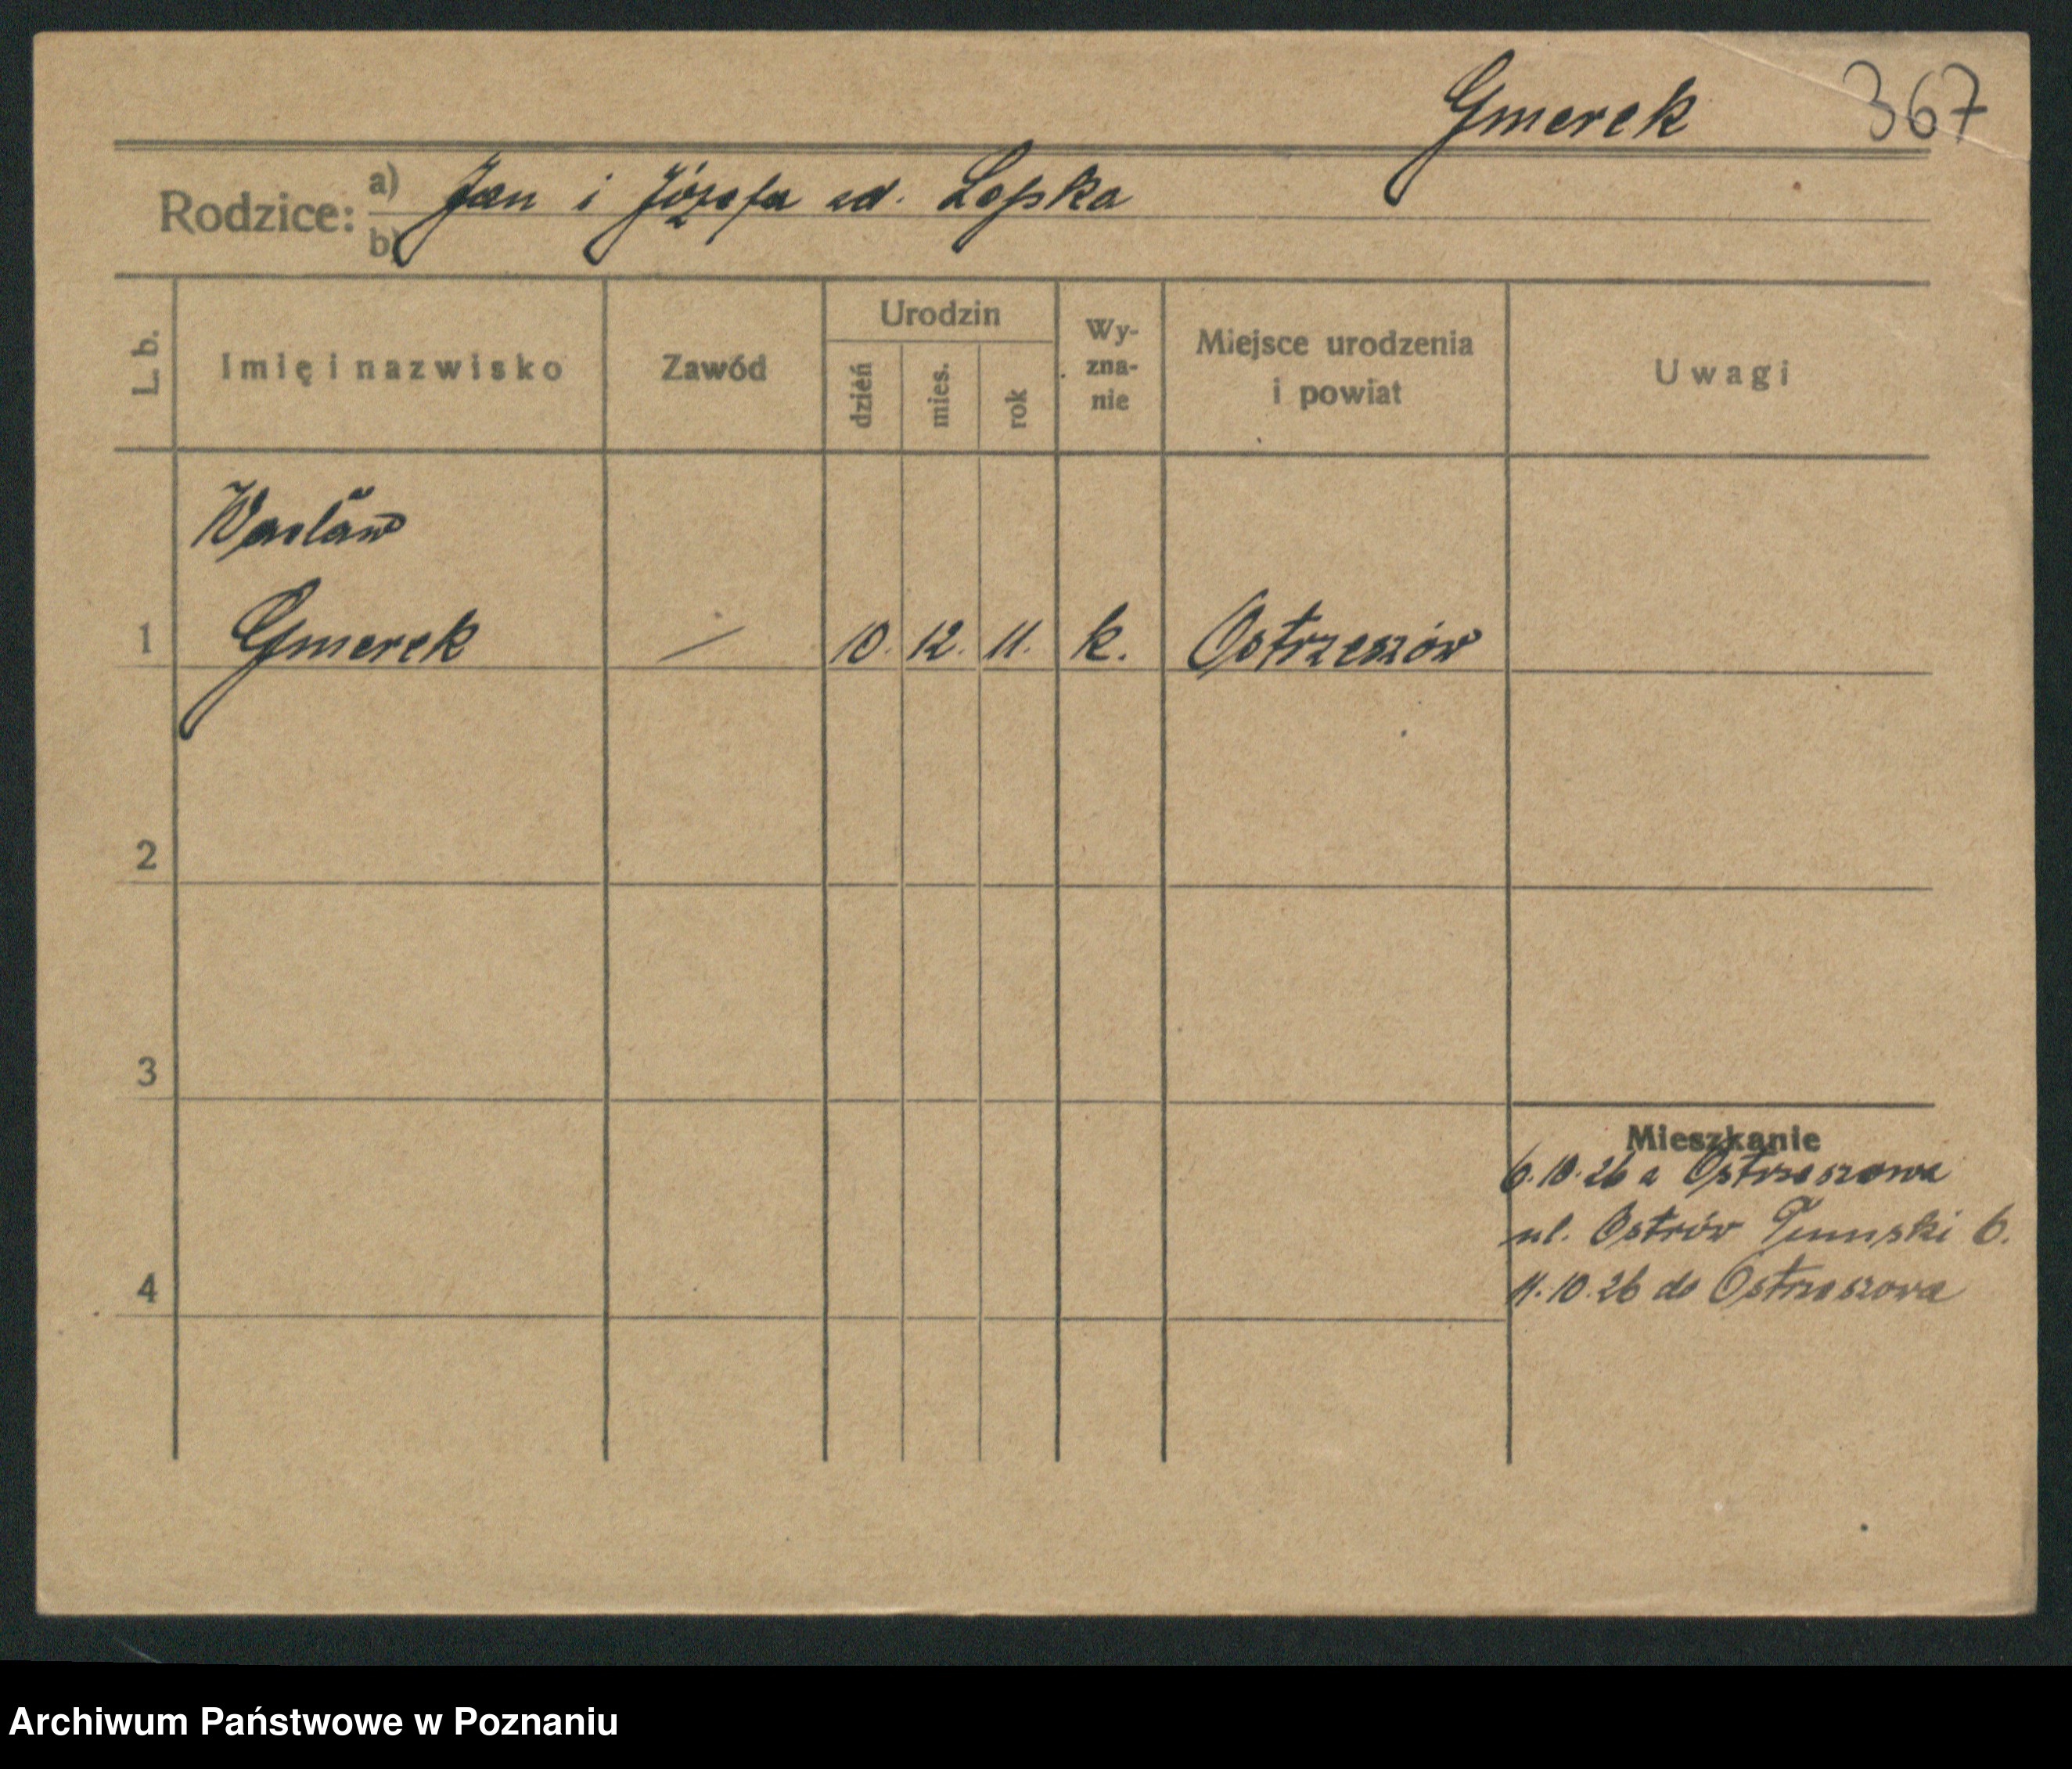 Gmerek 367
Rodzice: a) Jan i Józefa zd. Lepka
b)
L. b. Imię i nazwisko Zawód Urodzin dzień mies. rok Wy-zna-nie Miejsce urodzenia i powiat Uwagi
Wacław
1 Gmerek — 10. 12. 11. k. Ostrzeszów
2
3
Mieszkanie
6.10.26 z Ostrzeszowa
ul. Ostrów Tumski 6.
4 11.10.26 do Ostrzeszowa
Archiwum Państwowe w Poznaniu